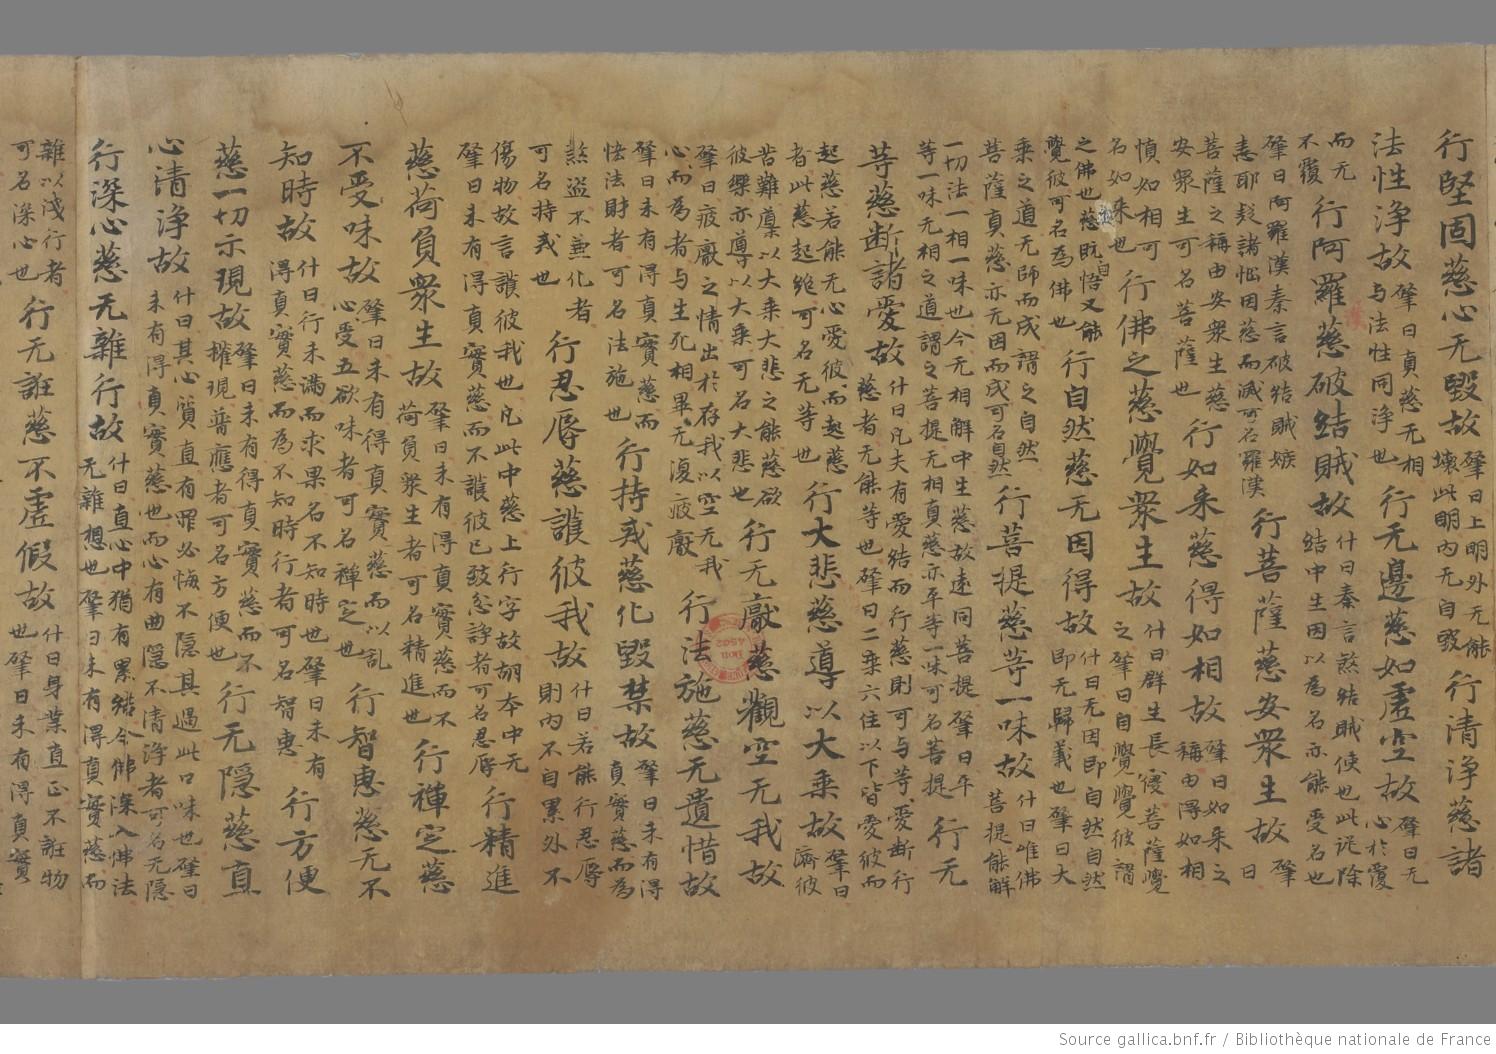 行堅固慈心无毀故肇曰上明外无能壞此明内无自毀行清淨慈諸
法性淨故肇曰真慈无相与法性同淨也行无邊慈如虛空故肇曰无心於覆
而无不覆行阿羅漢慈破結賊故什曰秦言煞結賊使也此從除結中生因以為名亦能受名也
肇曰阿羅漢秦言破結賊嫉恚耶疑諸惱因慈而滅可名羅漢行菩薩慈安衆生故肇曰
菩薩之稱由安衆生慈安衆生可名菩薩也行如来慈得如相故肇曰如来之稱由得如相
慎如相可名如来也行佛之慈覺衆生故什曰群生長寢菩薩覺之肇曰自覺覺彼謂
之佛也慈既自悟又能覺彼可名為佛也行自然慈无因得故什曰无因即自然自然即无歸義也肇曰大
乘之道无師而成謂之自然菩薩真慈亦无因而成可名自然行菩提慈等一味故什曰唯佛菩提能解
一切法一相一味也今无相解中生慈故遠同菩提肇曰平等一味无相之道謂之菩提无相真慈亦平等一味可名菩提行无
等慈断諸愛故什曰凡夫有愛結而行慈則可与等愛断行慈者无能等也肇曰二乘六住以下皆愛彼而
起慈若能无心愛彼而起慈者此慈起絶可名无等也行大悲慈導以大乘故肇曰濟彼
苦難廩以大乘大悲之能慈欲彼樂亦導以大乘可名大悲也行无厭慈觀空无我故
肇曰疲厭之情出於存我以空无我心而為者与生死相畢无復疲厭行法施慈无遺惜故
肇曰未有得真實慈而恡法財者可名法施也行持戒慈化毀禁故肇曰未有得真實慈而為
煞盗不兼化者可名持戒也行忍辱慈護彼我故什曰若能行忍辱則内不自累外不
傷物故言護彼我也凡此中慈上行字故胡本中无肇曰未有得真實慈而不護彼已致忿諍者可名忍辱行精進
慈荷負衆生故肇曰未有得真實慈而不荷負衆生者可名精進也行禅定慈
不受味故肇曰未有得真實慈而以乱心受五欲味者可名禅定也行智惠慈无不
知時故什曰行未滿而求果名不知時也肇曰未有得真實慈而為不知時行者可名智惠行方便
慈一切示現故肇曰未有得真實慈而不權現普應者可名方便也行无隐慈直
心清淨故什曰其心質直有罪必悔不隐其過此口味也肇曰未有得真實慈也而心有曲隐不清淨者可名无隐
行深心慈无雜行故什曰直心中猶有累縫今佛深入佛法无雜想也肇曰未有得真實慈而
雜以淺行者可名深心也行无誑慈不虛假故什曰身業直正不誑物也肇曰未有得真實